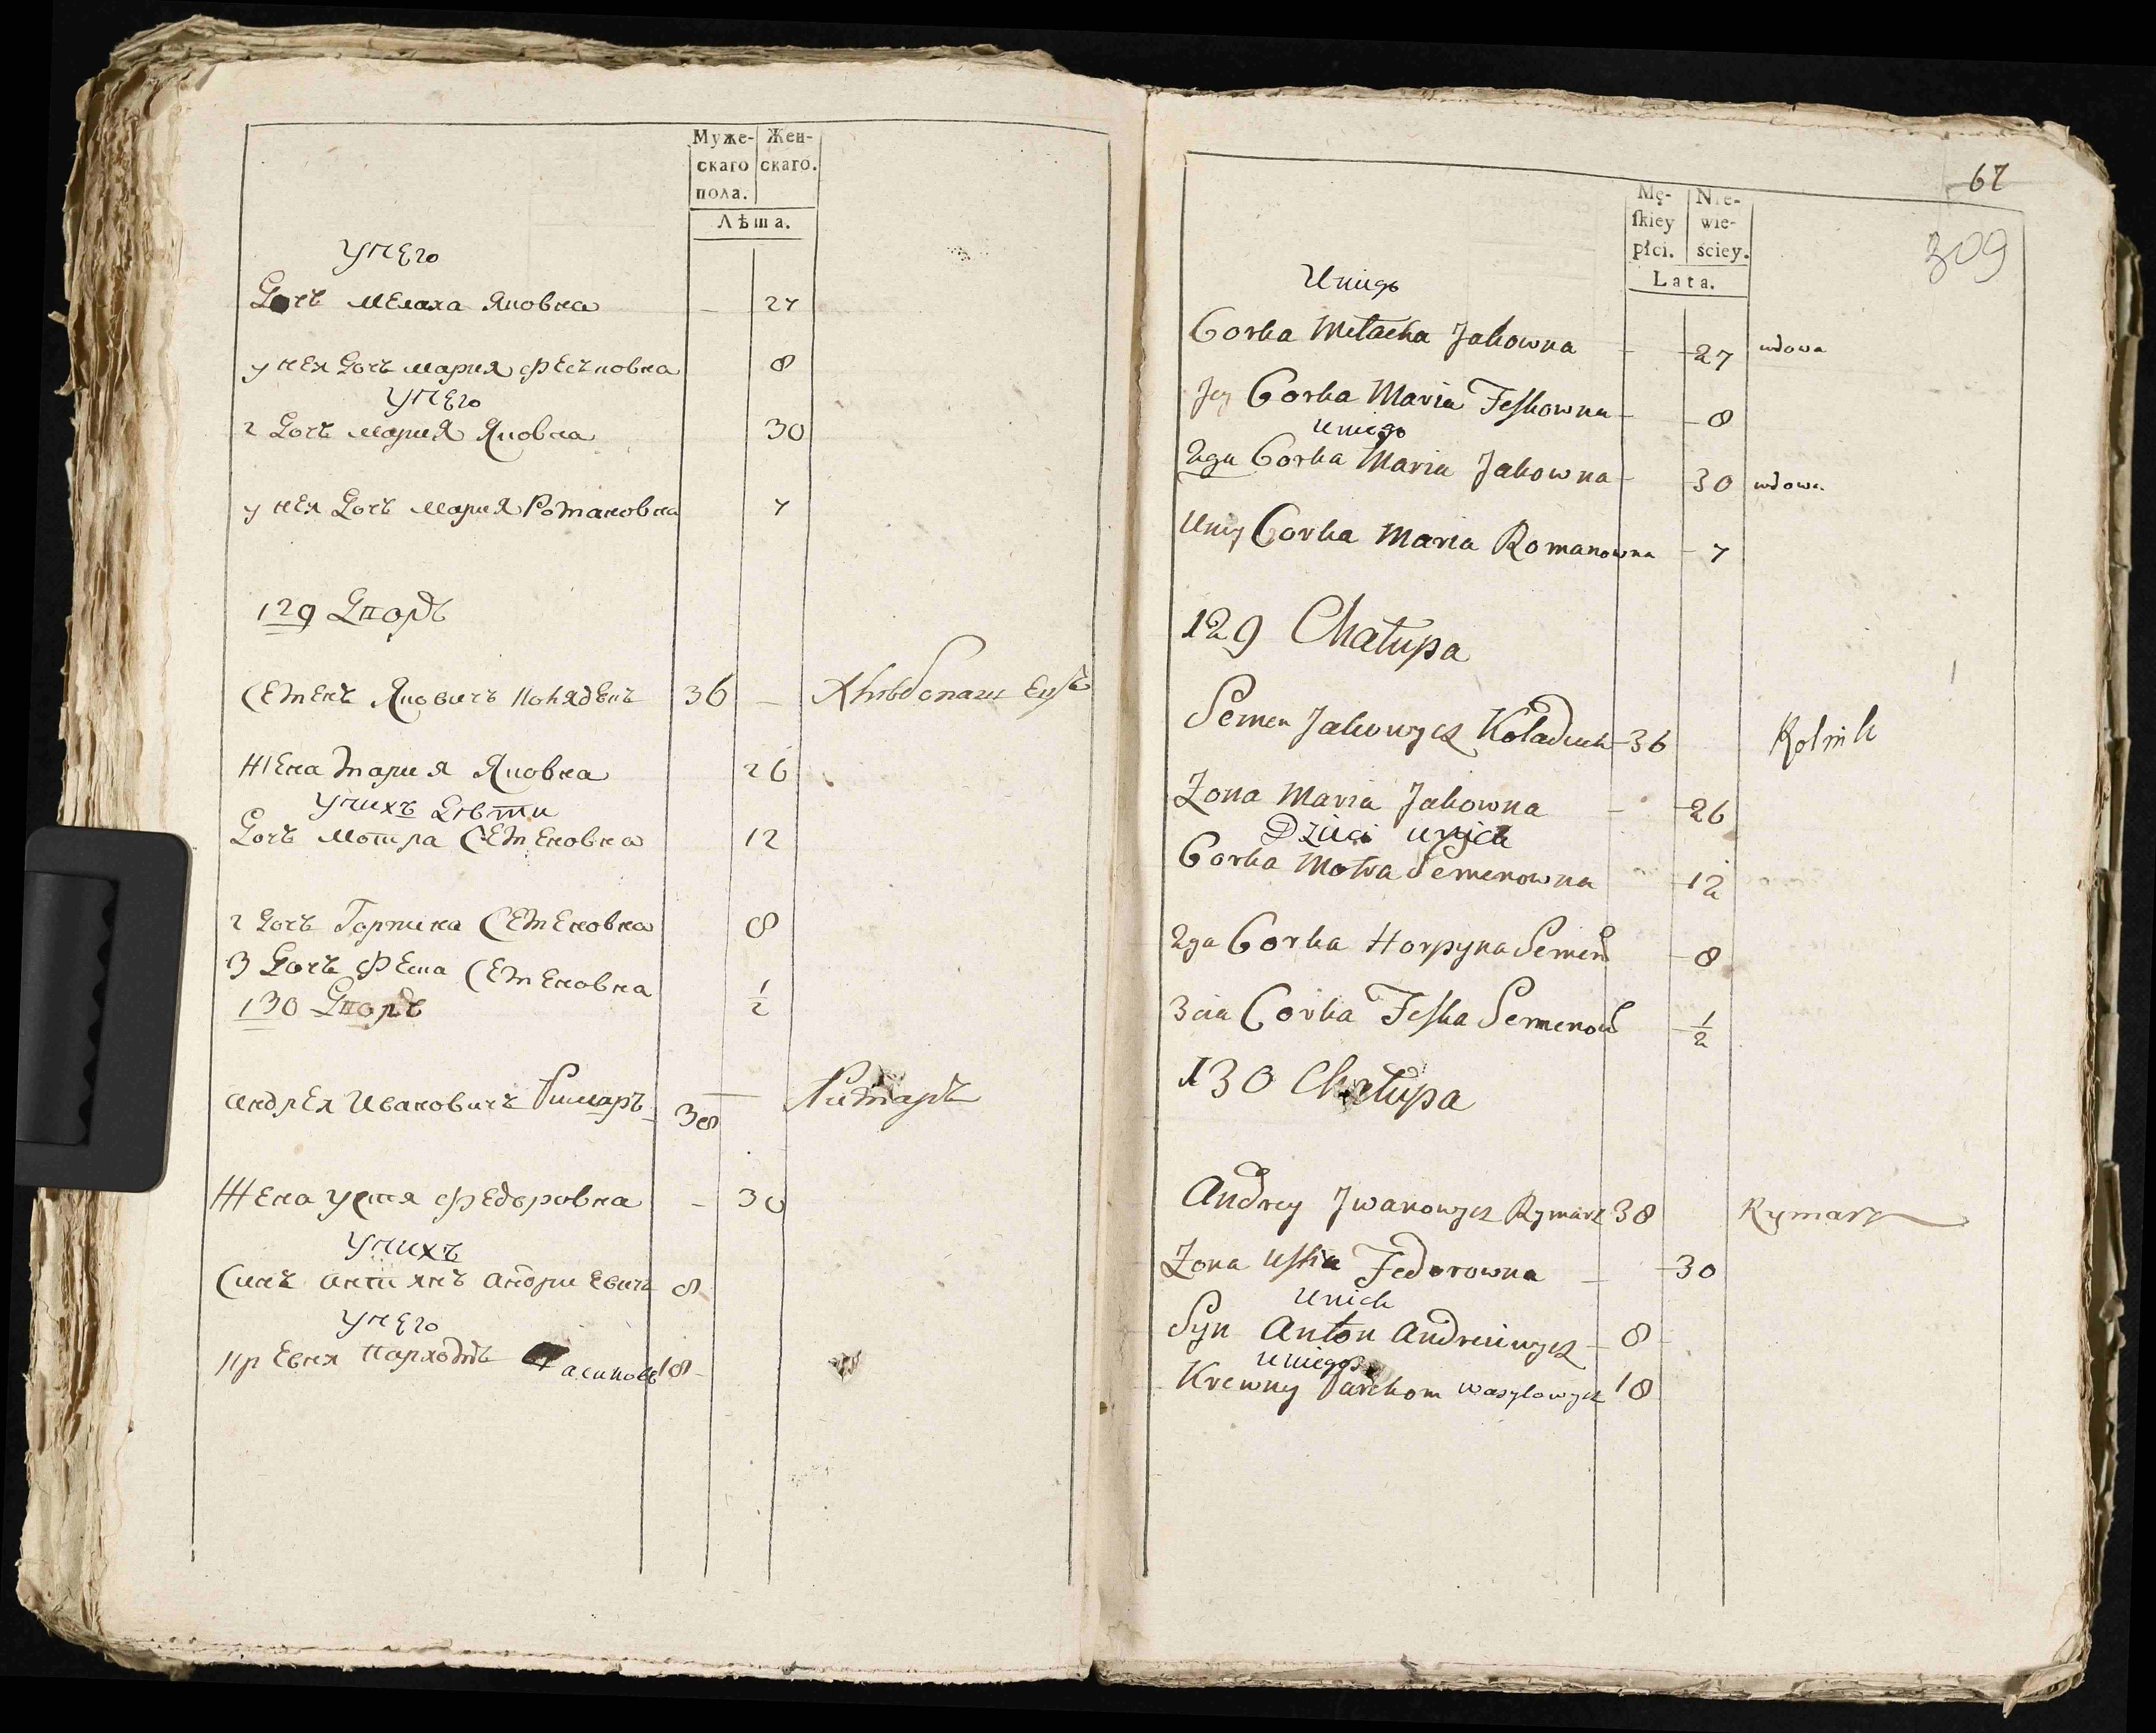 Муже-
скаго
пола.
Жен-
скаго.
Лѣта.
У него
Дочъ Мелаха Яковна – 27
у нея Дочъ Мария Феськовна 8
У него
2 Дочъ Мария Яковна 30
у нея Дочъ Мария Романовна 7
129 Дворъ
Семенъ Яковичъ 36 –
Жена Мария Яковна 26
У нихъ Дѣти
Дочъ Мотра Семеновна 12
2 Дочъ Гарпина Семеновна 8
3 Дочъ Феска Семеновна ½
130 Дворъ
Андрея Ивановичъ Римаръ 38 – Римаръ
Жена Устя Федоровна – 30
У нихъ
Синъ Антянъ Андриевичъ 8
У него
Пархомъ 18
67
309
Mę-
ſkiey
płci.
Nie-
wie-
ściey.
Lata.
Uniego
Corka Melacha Jakowna – 27 wdowa
Jey Corka Maria Feskowna – 8
Uniego
2ga Corka Maria Jakowna – 30 wdowa
Uniey Corka Maria Romanowna – 7
129 Chałupa
Semen Jakowycz Koladenk 36 Rolnik
Zona Maria Jakowna – 26
Dzieci unich
Corka Motra Semenowna 12
2ga Corka Horpyna Semen 8
3cia Corka Feska Semenow ½
130 Chałupa
Andrey Jwanowycz Rymarz 38 Rymarz
Zona Ustia Fedorowna – 30
Unich
Syn Anton Andreiewycz – 8
Uniego
Krewny Parchom Wasylowycz 18